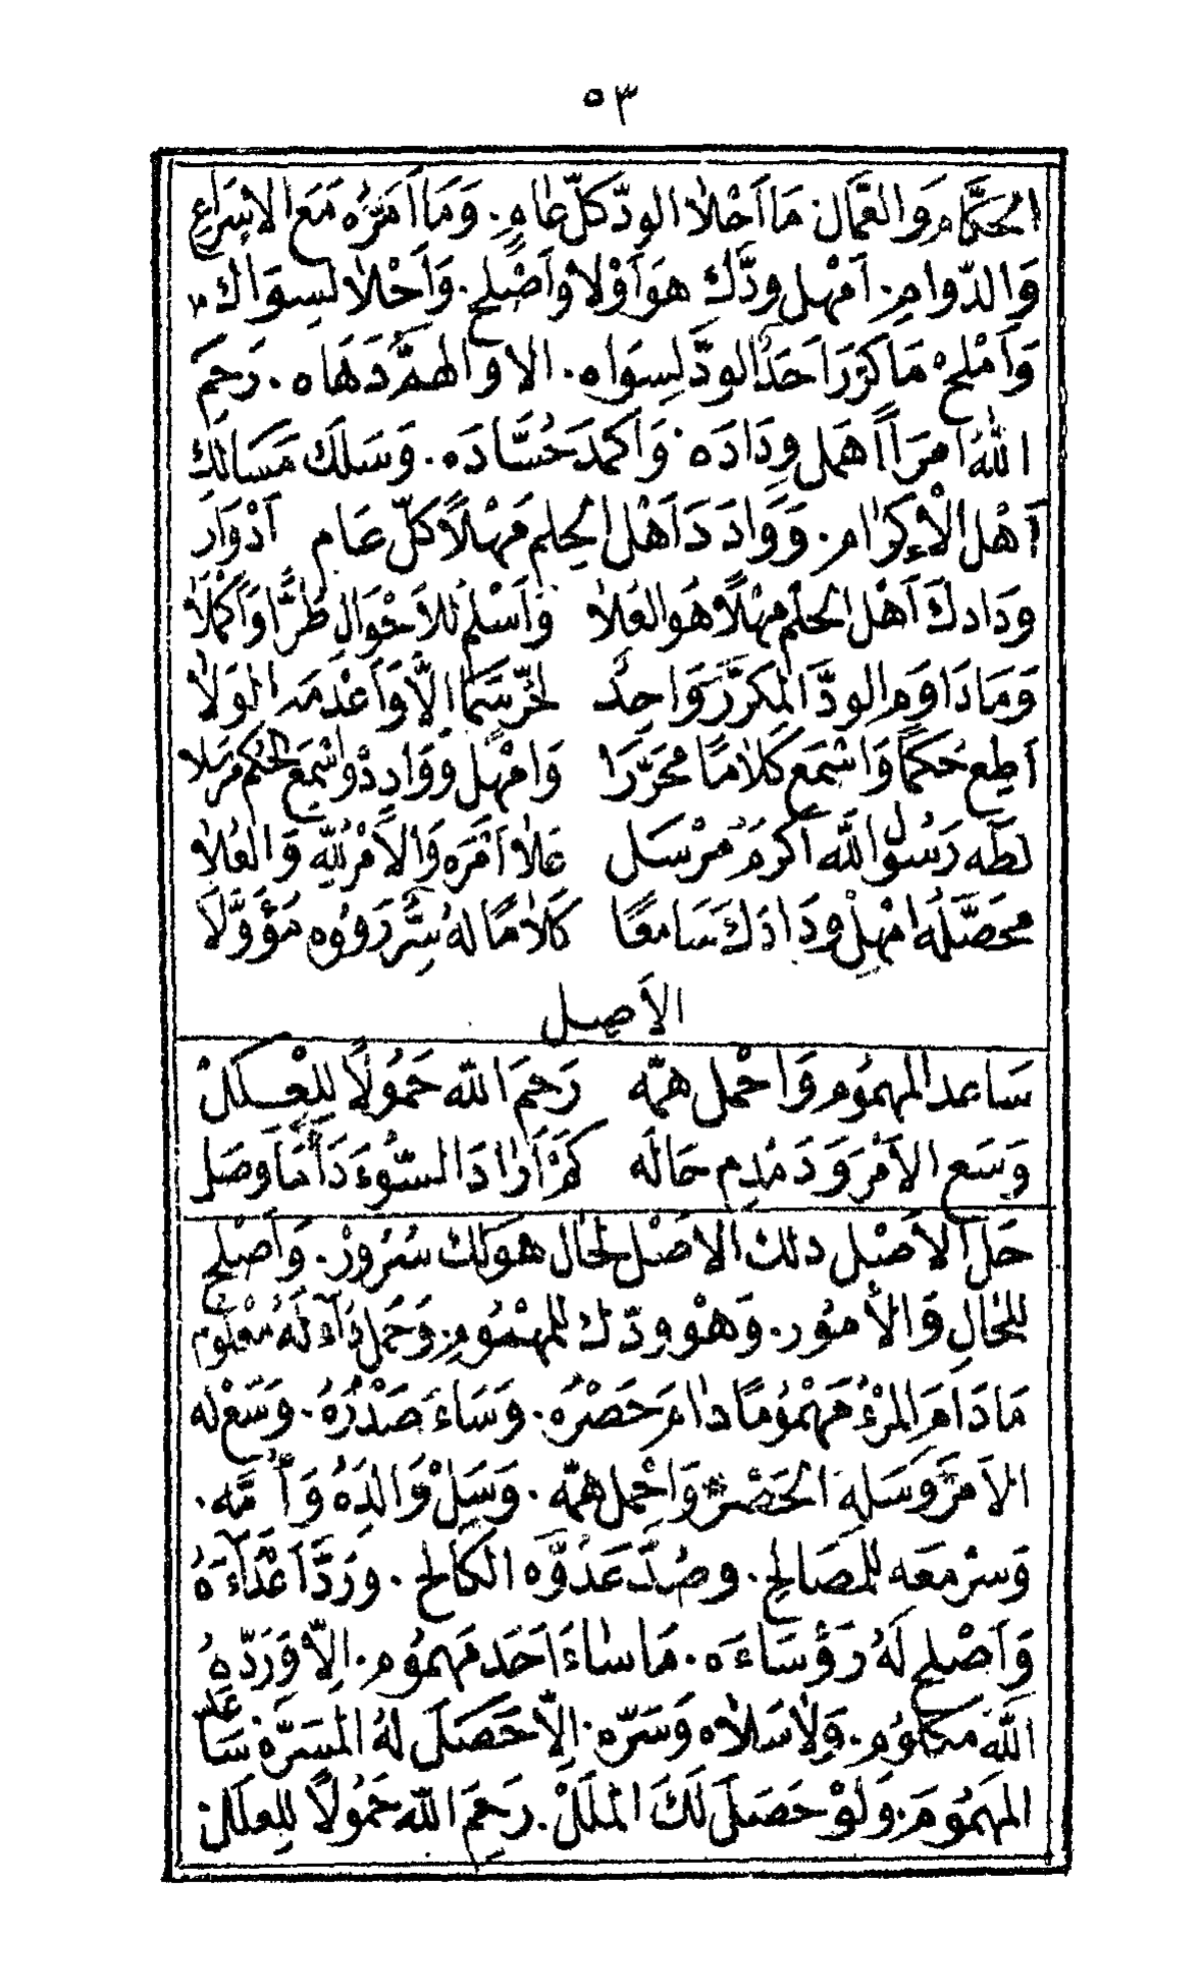 ٥٣
الحُكَّامِ وَالعُمَّال مَا اَحْلَا الودّ كلّ عَام. وَمَا اَمَرَّهُ مَعَ الاِسْرَاعِ
وَالدّوامِ. اَمْهِل ودَّكَ هوَ اَوْلا وَاَصْلح. وَاَحْلا لسِوَاك
وَاَمْلح مَا كرّرَ اَحَدٌ الودَّ لِسِوَاه. الا وَالهمُّ دَهَاه. رَحِمَ
اللهُ امرَأً اَمهَل وِدَادَه وَاَكمدَ حُسَّادَه. وَسَلَك مَسَالك
اَهْل الْاِكرَام. وَوَادَدَ اَهْل الحِلم مَهْلًا كلّ عَام اَدْوَار
ودَادكَ اَهْل الحلْم مهْلًا هُوَ العُلا وَاَسْلمُ للاَحْوَالِ طُرًّا وَاَكْمَلَا
وَمَا دَاوَمَ الودَّ المكرّرَ وَاحِدٌ لحُرٍّ سَمَا الّا وَاَعْدَمَه الوَلَا
اَطِع حَكمًا وَاسْمَع كَلَامًا محَرَّرَا وَامْهِلْ وَوَادِدْ وَاسْمَع الحُكم مُرسَلا
لطٰه رَسُول اللّه اَكرَم مُرْسَل عَلَا اَمْرَه وَالاَمْرُ للّه وَالعُلا
محَصَّلُه امْهِلْ ودَادَكَ سَامعًا كَلَامًا لهُ سُرَّ رَوَوْه مُؤَوَّلَا
الاَصل
سَاعد المهمُوم وَاحْمل همّه رَحِمَ اللّه حَمُولًا لِلْعِلَلْ
وَسِّع الاَمْرَ وَدَمْدِم حَالَه كمْ اَرَادَ السّوْءَ دَاْمَا وَصَل
حَلّ الاَصْل ذلك الاَصْل لحَال هوَ لك سُرُورْ. وَاَصْلح
للحَالِ وَالأمُور. وَهْوَ ودّك للمهْمُومِ. وَحَمل دَآء لَهُ مَعْلُوم
مَا دَامَ المرْءُ مَهْمُومًا دَامَ حَصْرُه. وَسَاءَ صَدْرُهُ. وَسّعْ له
الاَمرَ وَسَله الحَصْر وَاحْمل همّه. وَسَلْ وَالدَهُ وَاُمَّه.
وَسرْ مَعَه للمصَالح. وصُدَّ عَدُوَّه الكَالح. وَرُدَّ اَعْدَآءَهُ
وَاَصْلح لَهُ رُؤَسَاءَه. مَا سَاءَ اَحَد مَهمُوم. الّا وَرَدّهُ
اللّه مَكلُوم. وَلَا سَلَاه وَسَرّه. اِلّا حَصَلَ لهُ المسَرَّة سَاعد
المهمُومَ. وَلَوْ حَصَلَ لَكَ الملَلْ. رَحِمَ اللّه حَمُولًا لِلعِلَلْ